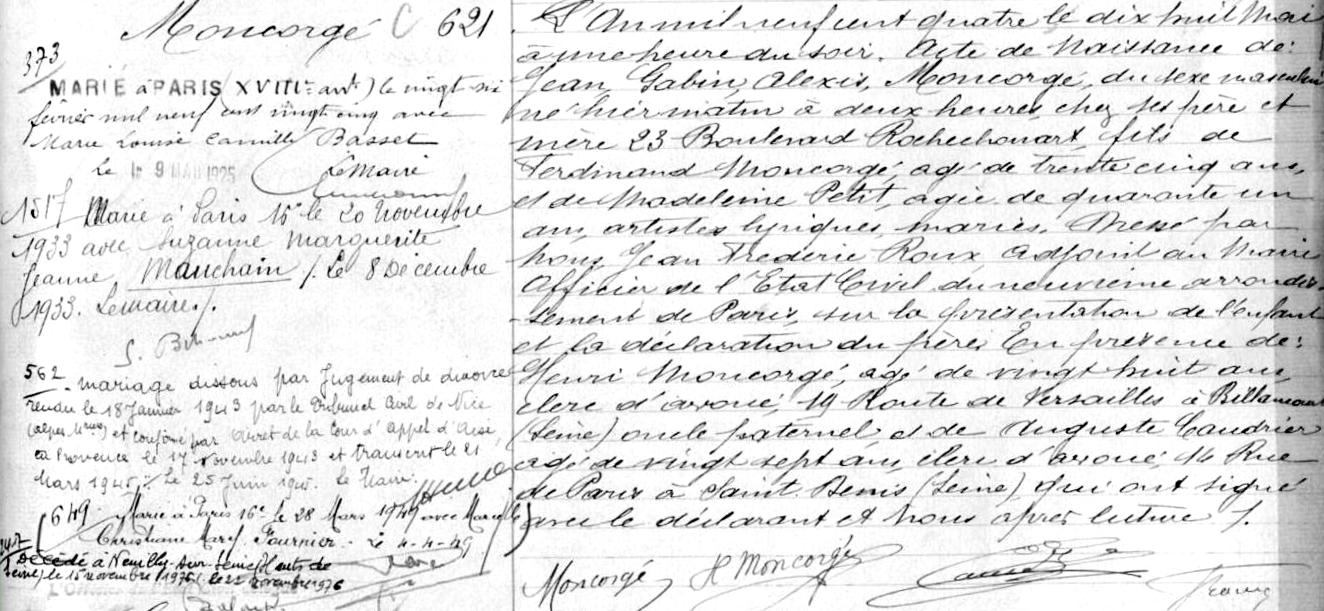 Moncorgé C 621
373
MARIÉ à PARIS XVIII= arrt) le vingt six
février mil neuf cent vingt cinq avec
Marie Louise Camille Basset
Le 9 MAR 1925 Le Maire
1517 Marié à Paris 16e le 20 Novembre
1933 avec Suzanne Marguerite
Jeanne Mauchain /. Le 8 Décembre
1933. Lemaire /.
562 - mariage dissous par Jugement de divorce
rendu le 18 Janvier 1943 par le Tribunal Civil de Nice
(Alpes Mmes) et confirmé par Arrêt de la Cour d'Appel d'Aix
en Provence le 17 Novembre 1943 et transcrit le 21
Mars 1945 /. Le 25 Juin 1945. Le Maire.
649 - Marié à Paris 16e le 28 Mars 1949 avec Marcelle
Christiane Marie Fournier - Le 4-4-49
Décédé à Neuilly-sur-Seine (Hauts de
Seine) le 15 novembre 1976 / le 22 novembre 1976
L'An mil neuf cent quatre le dix huit Mai
à une heure du soir. Acte de Naissance de:
Jean Gabin, Alexis, Moncorgé, du sexe masculin
né hier matin à deux heures, chez ses père et
mère 23 Boulevard Rochechouart, fils de
Ferdinand Moncorgé, agé de trente cinq ans,
et de Madeleine Petit, agée de quarante un
ans, artistes lyriques, mariés. Dressé par
Nous, Jean Frédéric Roux Adjoint au Maire
Officier de l'Etat Civil du neuvième arrondis-
-sement de Paris, sur la présentation de l'enfant
et la déclaration du père. En présence de:
Henri Moncorgé, agé de vingt huit ans,
clerc d'avoué, 19 Route de Versailles à Billancourt
(Seine) oncle paternel, et de Auguste Caudrier
agé de vingt sept ans, clerc d'avoué, 14 Rue
de Paris à Saint Denis (Seine) qui ont signé
avec le déclarant et Nous après lecture /.
Moncorgé H Moncorgé